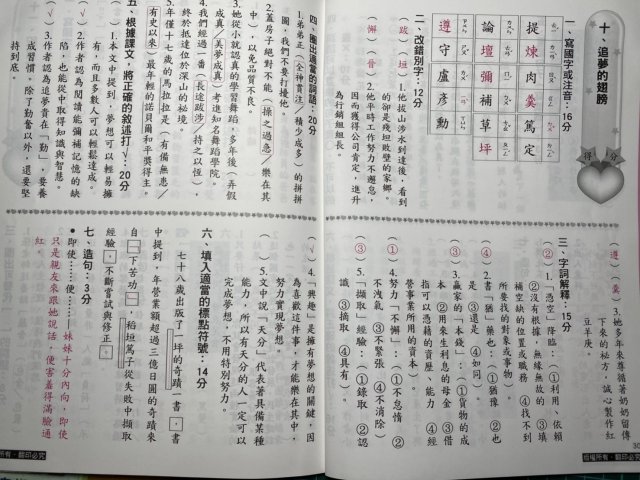 十、追夢的翅膀
得分
一、寫國字或注音：16分
提煉
肉羹
篤定
論壇
彌補
草坪
遵守
盧彥勳
二、改錯別字：12分
（跋）（垣）1.他拔山涉水到達後，看到
的卻是殘坦敗壁的家鄉。
（懈）（晉）2.他平時工作努力不邂怠，
因而獲得公司肯定，進升
為行銷組組長。
（遵）（羹）3.她多年來尊循著奶奶留傳
下來的秘方，誠心製作紅
豆羊庚。
三、字詞解釋：15分
（②）1.「憑空」降臨：①利用、依賴
②沒有根據，無緣無故的 ③填
補空缺的位置或職務 ④找不到
所要找的對象或事物。
（④）2.書「猶」藥也：①猶豫 ②也
是 ③還是 ④如同。
（③）3.贏家的「本錢」：①貨物的成
本 ②用來生利息的母金 ③借
指可以憑藉的資歷、能力 ④經
營事業所用的資本
（①）4.努力「不懈」：①不怠惰 ②
不洩氣 ③不緊張 ④不消除
（③）5.「擷取」經驗：①錄取 ②認
識 ③摘取 ④具有。
四、圈出適當的詞語：20分
1.弟弟正（全神貫注／積少成多）的拼拼
圖，我們不要打擾他。
2.蓋房子絕對不能（操之過急／樂在其
中），以免品質不良。
3.她從小就認真的學習舞蹈，多年後（弄假
成真／美夢成真）考進知名舞蹈學院。
4.我們經過一番（長途跋涉／持之以恆），
終於抵達位於深山的祕境。
5.年僅十七歲的馬拉拉是（有備無患／
有史以來）最年輕的諾貝爾和平獎得主。
五、根據課文，將正確的敘述打√：20分
（ ）1.本文中提到，夢想可以輕易擁
有，而且多數人可以輕鬆達成。
（√）2.作者認為閱讀能彌補記憶的缺
陷，也能從中取得知識與智慧。
（√）3.作者認為追夢貴在「勤」，要養
成習慣，除了勤奮以外，還要堅
持到底。
（√）4.「興趣」是擁有夢想的關鍵，因
為喜歡這件事，才能樂在其中，
努力實現夢想。
（ ）5.文中說「天分」代表著具備某種
能力，所以有天分的人一定可以
完成夢想，不用特別努力。
六、填入適當的標點符號：14分
七十八歲出版了一坪的奇蹟一書，書
中提到，年營業額超過三億日圓的奇蹟來
自「一下苦功」，稻垣篤子從失敗中擷取
經驗，不斷嘗試與修正。
七、造句：3分
●即使……便……——妹妹十分內向，即使
只是親友來跟她說話，便害羞得滿臉通
紅。
30
版權所有‧翻印必究